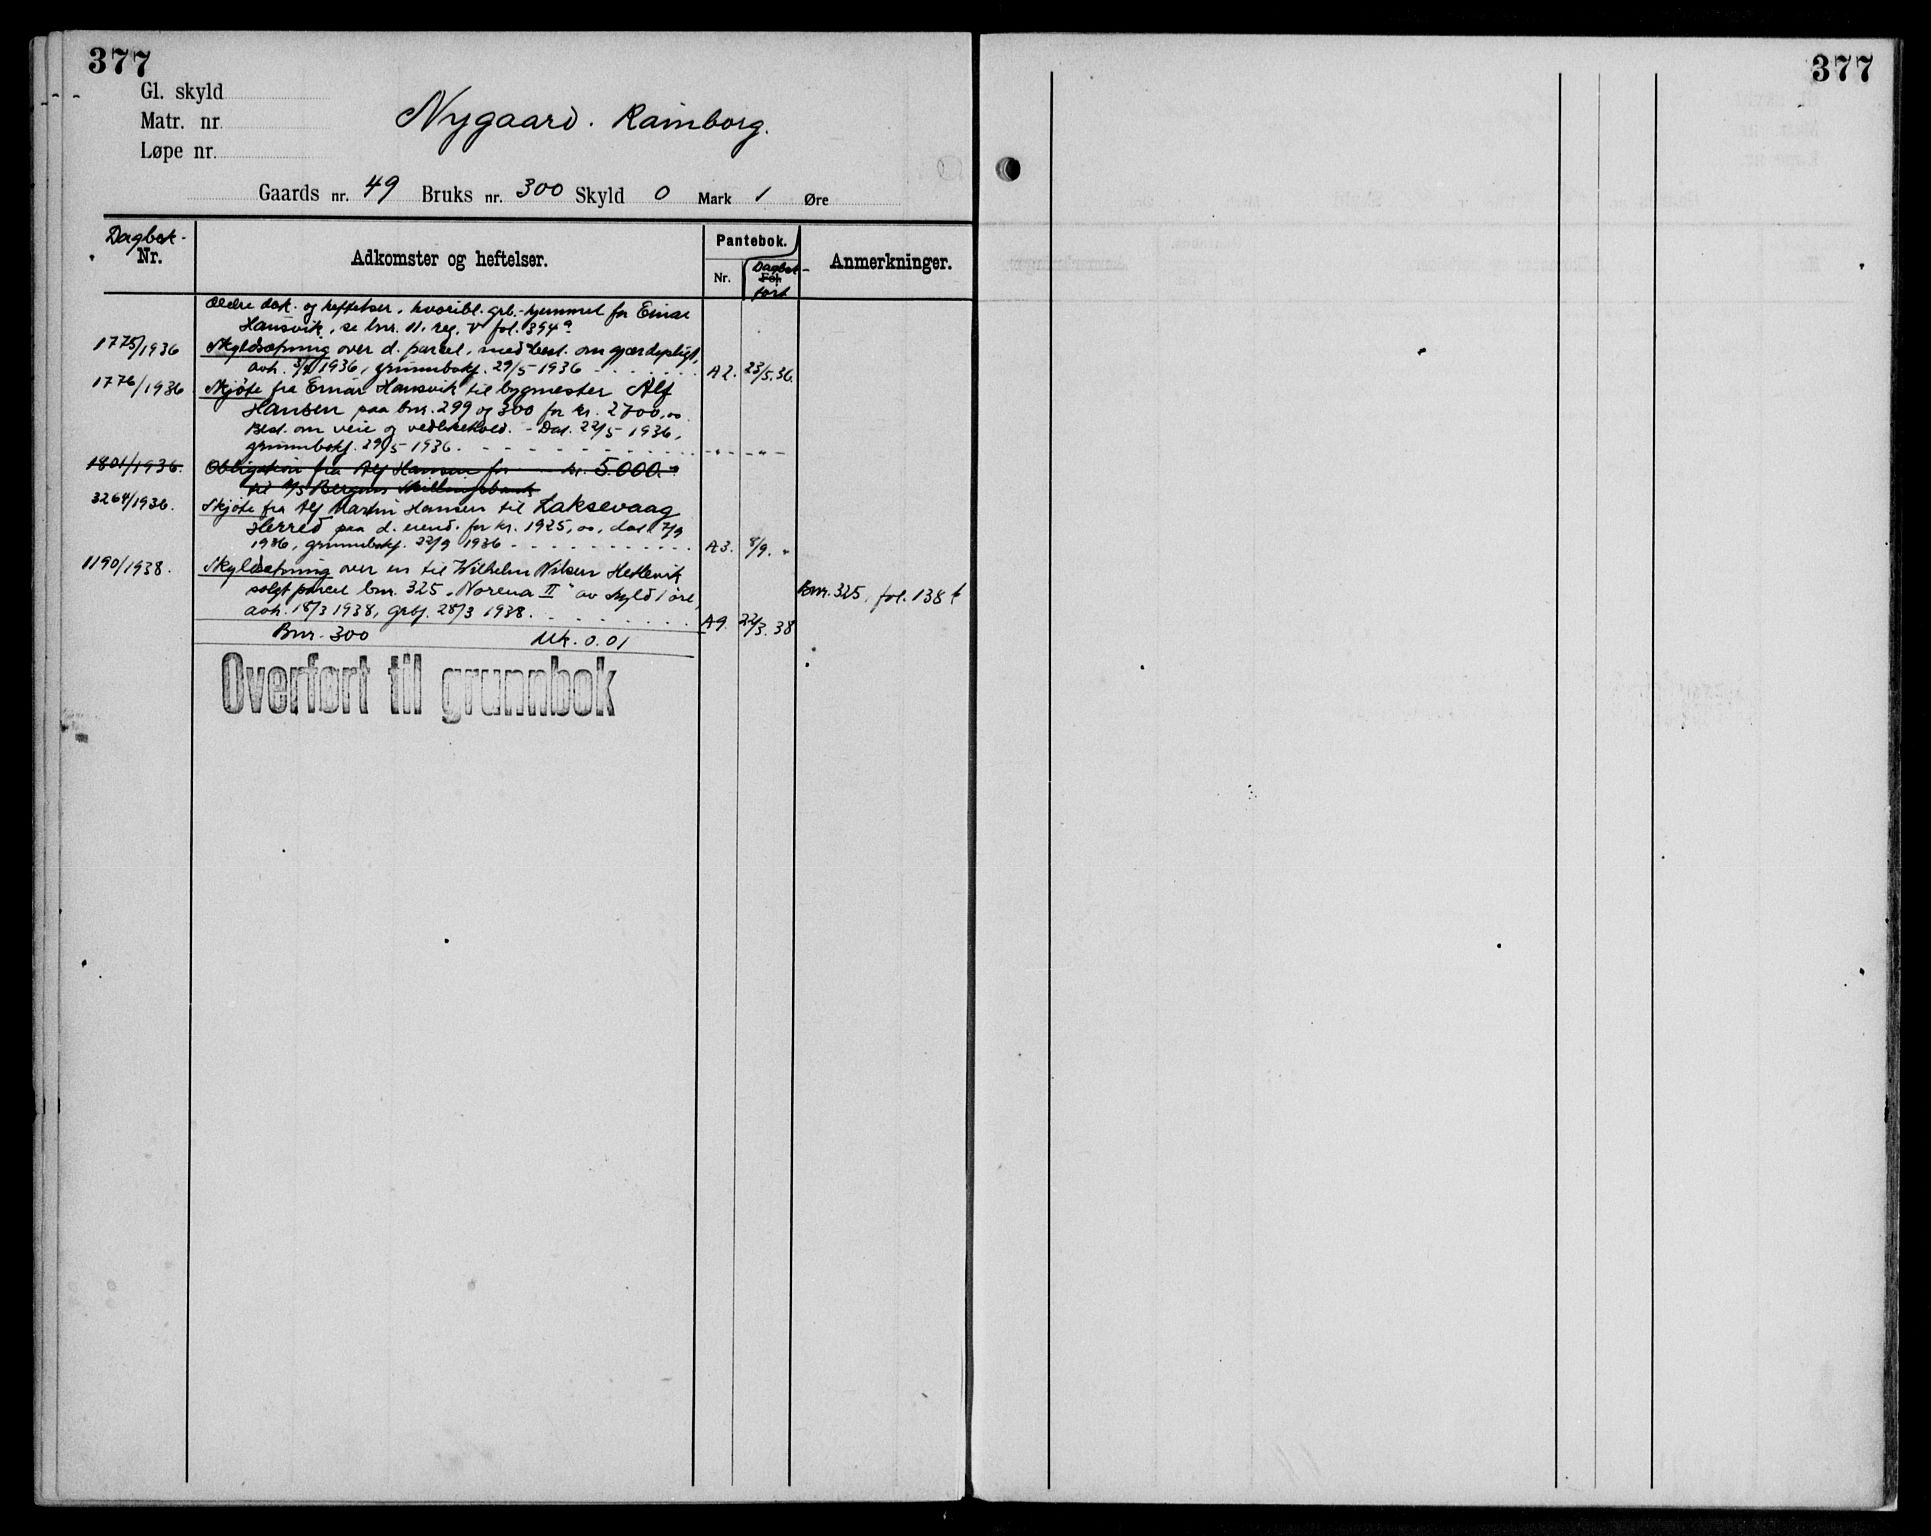 377
377
Gl. skyld
Matr. nr.
Løpe nr.
Nygaard. Ramborg.
Gaards nr. 49 Bruks nr. 300 Skyld 0 Mark 1 Øre
Dagbok-
Nr.
Adkomster og heftelser.
Pantebok.
Nr.
Dagbok-
Fol.
ført
Anmerkninger.
Ældre dok. og heftelser, hvoribl. grb.-hjemmel for Einar
Hansvik, se bnr. 11, reg. V fol. 394a
1775/1936 Skyldsætning over d. parcel, med best. om gjerdepligt,
avh. 1936, grunnbokf. 29/5-1936 A 2. 23/5.36.
1776/1936 Skjøte fra Einar Hansvik til bygmester Alf
Hansen paa bnr. 299 og 300 for kr. 2700,oo
Best. om veie og vedlikehold. - Dat. 22/5-1936,
grunnbokf. 29/5-1936. - " - - " -
1801/1936. Obligation fra Alf Hansen for kr. 5.000.-
til A/S Bergens Skillingsbank
3264/1936. Skjøte fra Alf Martin Hansen til Laksevaag
Herred paa d. eiend. for kr. 1925,oo, dat. 7/9
1936, grunnbokf. 22/9 1936 A 3. 8/9. "
1190/1938. Skyldsætning over en til Wilhelm Nilsen Hetlevik
solgt parcel bnr. 325 „Norena II" av skyld 1 øre, Bnr. 325, fol. 138
avh. 18/3 1938, grbf. 28/3 1938. A 9. 22/3.38
Bnr. 300 Mk. 0.01
Overført til grunnbok